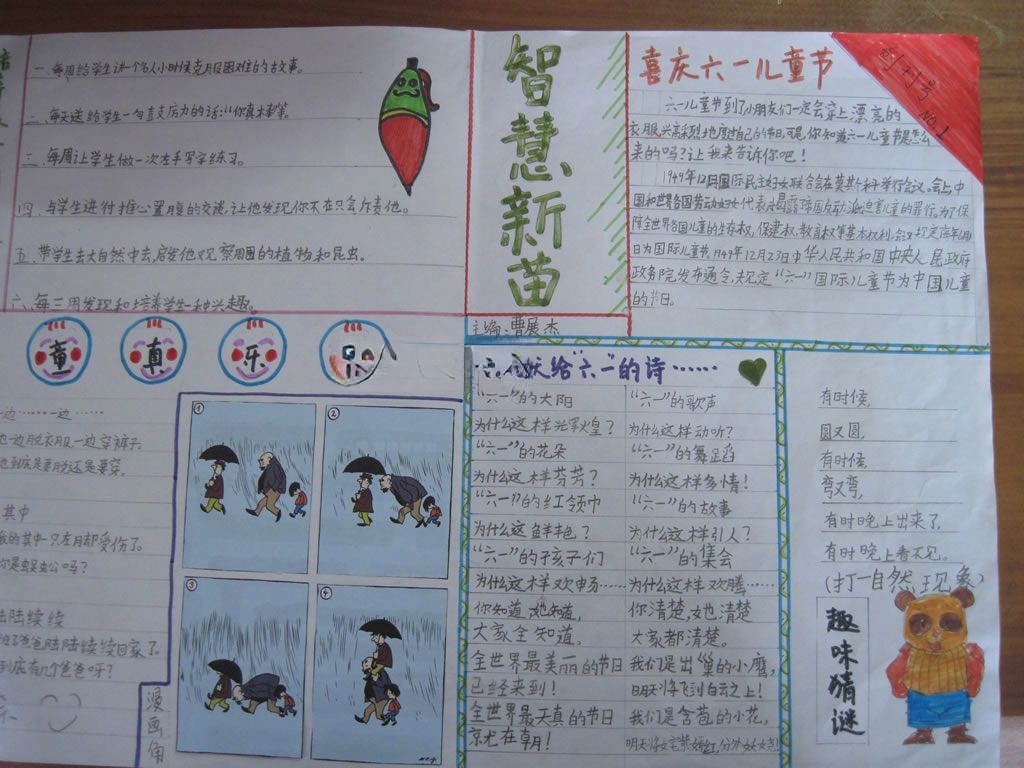 一、每周给学生讲一个名人小时候克服困难的故事。
二、每天送给学生一句支支厉力的话:"你真棒"等。
三、每周让学生做一次左手写字练习。
四、与学生进行推心置腹的交谈,让他发现你不在只会斥责他。
五、带学生去大自然中去,启发他观察周围的植物和昆虫。
六、每三周发现和培养学生一种兴趣。
智慧新苗
主编:曹展杰
创刊号
NO.1
喜庆六一儿童节
六一儿童节到了小朋友们一定会穿上漂亮的
衣服,兴高采烈地度过自己的节日,可是,你知道六一儿童节是怎么
来的吗?让我来告诉你吧!
1949年12月国际民主妇女联合会在莫其科举行会议,会上,中
国和世界各国劳动妇女代表
为了保
障全世界各国儿童的生存权,保健权,教育权等基本权利,会议规定每年6月1
日为国际儿童节,1949年12月23日中华人民共和国中央人民政府
政务院发布通令,规定"六一"国际儿童节为中国儿童
的节日。
童真乐
一边……一边……
他一边脱衣服一边穿裤子。
他到底是要脱还是要穿。
其中
我的其中一只左脚受伤了。
你是蜈蚣吗?
陆陆续续
爸爸陆陆续续回家了。
到底有几个爸爸呀?
漫画角
①
②
③
④
献给"六一"的诗……
"六一"的太阳
为什么这样光辉煌?
"六一"的花朵
为什么这样芬芳?
"六一"的红领巾
为什么这鲜艳?
"六一"的孩子们
为什么这样欢畅……
你知道她知道,
大家全知道。
全世界最美丽的节日
已经来到!
全世界最天真的节日
就在今朝!
"六一"的歌声
为什么这样动听?
"六一"的舞蹈
为什么这样多情!
"六一"的故事
为什么这样引人?
"六一"的集会
为什么这样欢腾……
你清楚,她也清楚
大家都清楚。
我们是出巢的小鹰,
明天将飞到白云之上!
我们是含苞的小花,
明天将
有时候,
圆又圆,
有时候,
弯又弯,
有时晚上出来了,
有时晚上看不见。
(打一自然现象)
趣味猜谜